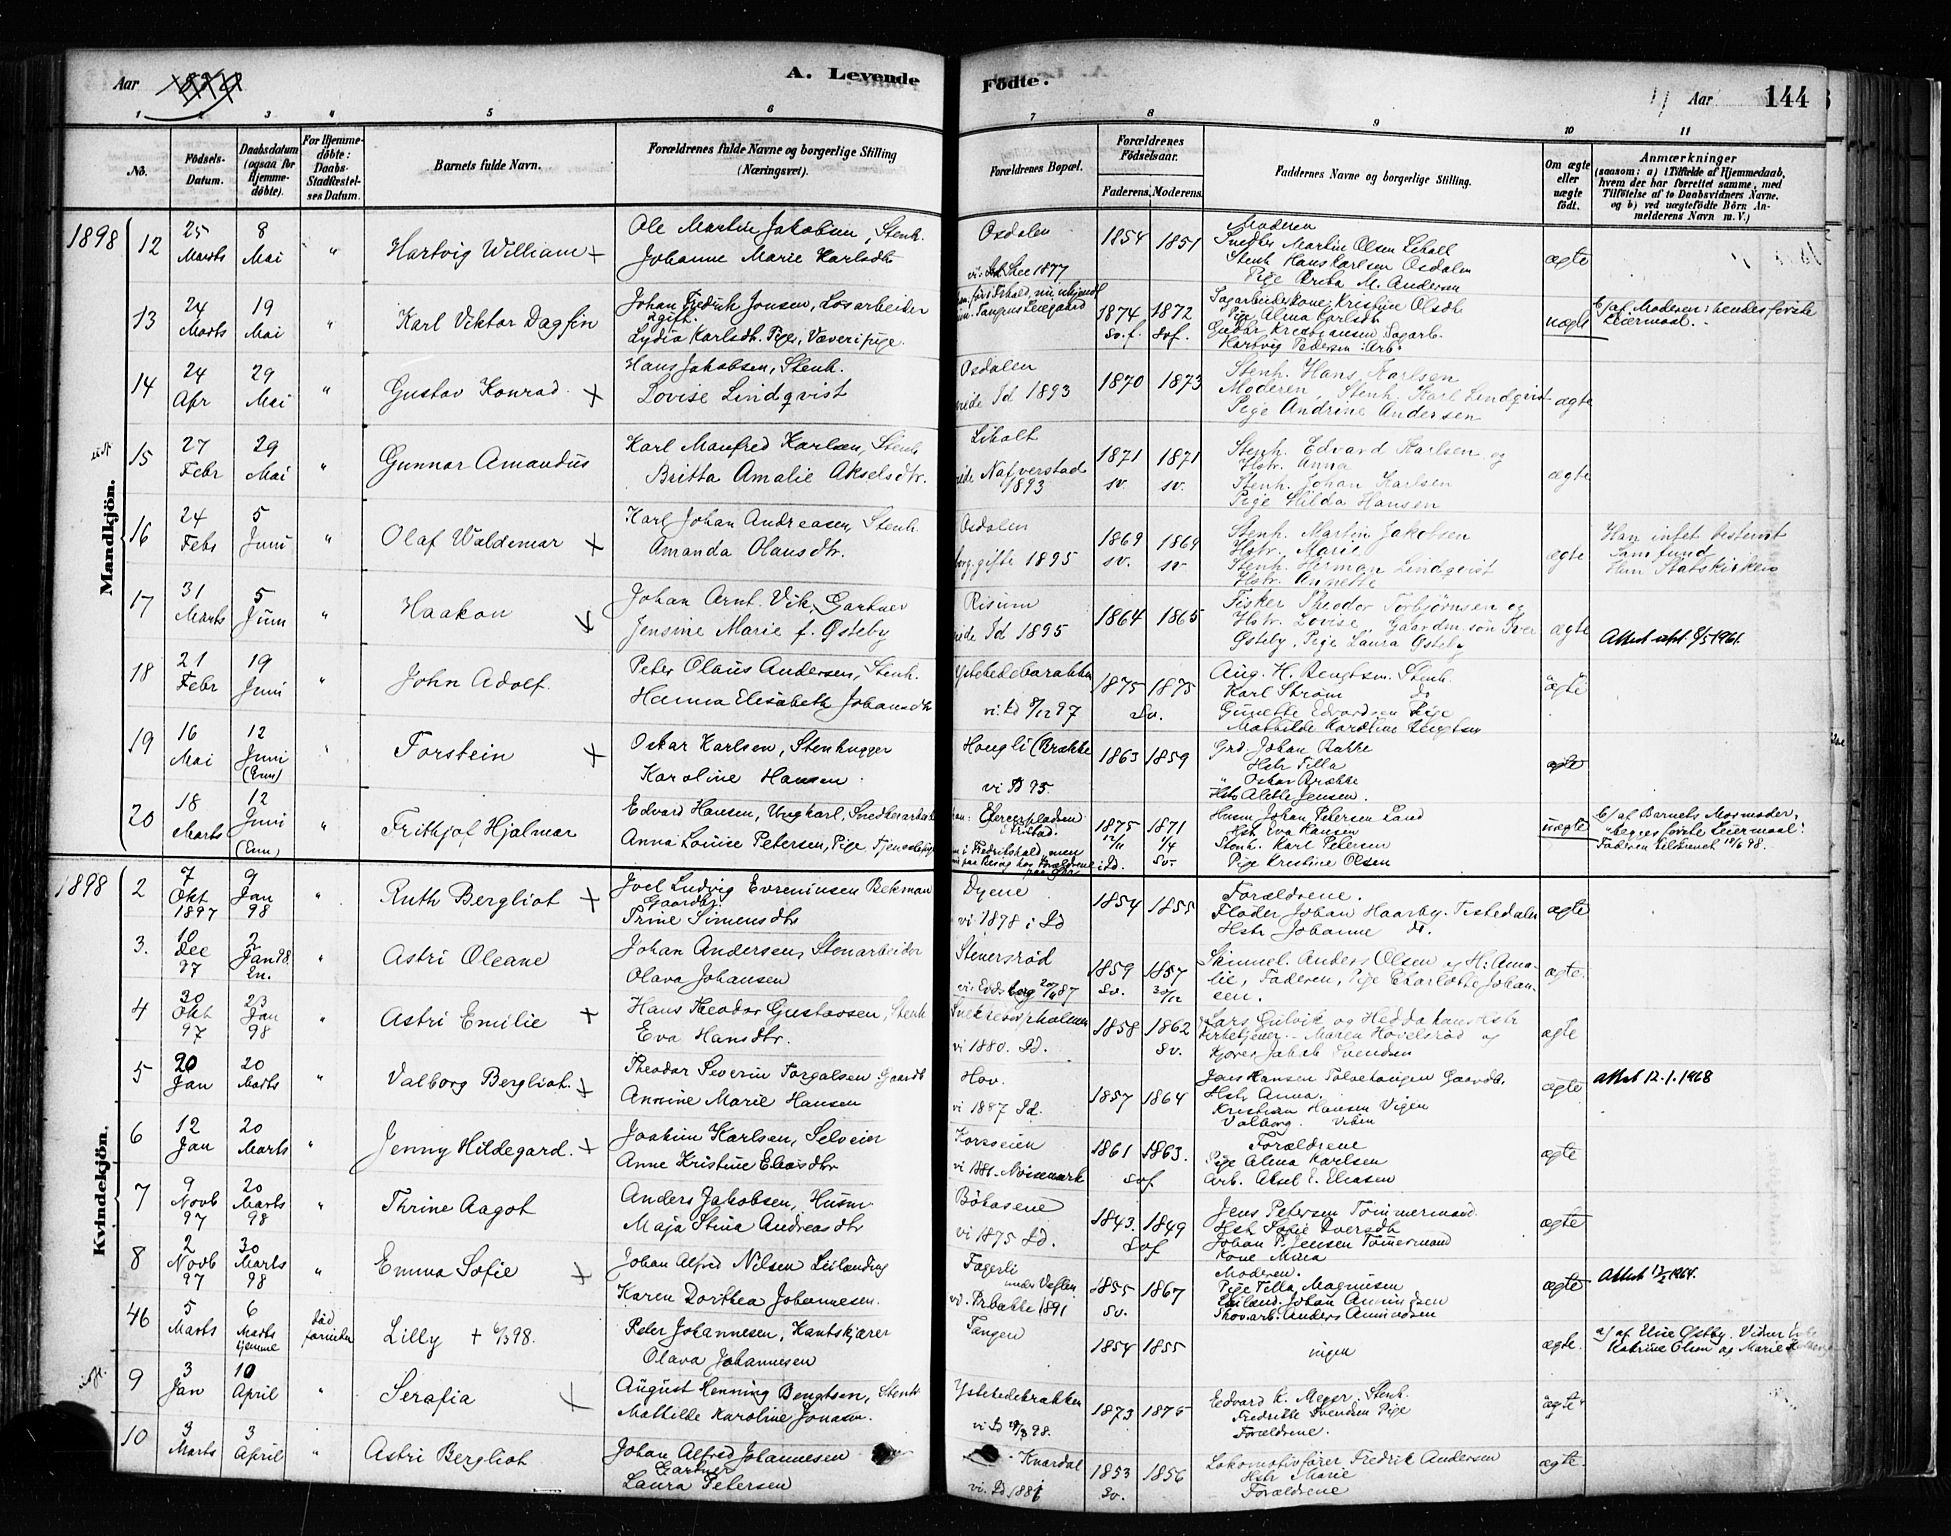 Aar
A. Levende
Födte.
Aar
144
1 2 3 4 5 6 7 8 9 10 11
No.
Födsels-Datum.
Daabsdatum (ogsaa for Hjemme-döbte).
For Hjemme-döbte: Daabs-Stadfæstel-ses Datum.
Barnets fulde Navn.
Forældrenes fulde Navne og borgerlige Stilling (Næringsvei).
Forældrenes Bopæl.
Forældrenes Födselsaar.
Faderens. Moderens.
Faddernes Navne og borgerlige Stilling.
Om ægte eller uægte födt.
Anmærkninger
(saasom: a) i Tilfælde af Hjemmedaab, hvem der har forrettet samme, med Tilföielse af to Daabsvidners Navne. og b) ved uægtefödte Börn An-melderens Navn m. V.)
Mandkjön.
1898 12 25 Marts 8 Mai " Hartvig William +
Ole Martin Jakobsen, Stenh.
Johanne Marie Karlsdtr
Osdalen
1854 1851
Moderen
Snedker Martin Olsen Liholt
Stenh Hans Karlsen Osdalen
Pige Berta M. Andersen
ægte
13 24 Marts 19 Mai " Karl Viktor Dagfin
Johan Fredrik Jonsen, Løsarbeider
ugift.
Lydia Karlsdtr. Pige, Væveripige.
1874 1872
Sv. f. Svf.
Sagarbeiderkone Kristine Olsdtr
Pige Alma Karlsdtr
Gustav Kristiansen Sagarb.
Hartvig Pedersen Arb.
uægte
b/ af Moderen: hendes første Leiermaal.
14 24 Apr 29 Mai " Gustav Konrad +
Hans Jakobsen, Stenh.
Lovise Lindqvist
Osdalen
viede Id 1893
1870 1873
Stenh. Hans Karlsen
Moderen Stenh. Karl Lindqvist
Pige Andrine Andersen
ægte
15 27 Febr 29 Mai " Gunnar Amandus
Karl Manfred Karlsen, Stenh
Britta Amalie Akselsdtr.
Liholt
viede Naverstad 1893
1871 1871
sv. sv.
Stenh. Edvard Karlsen og
Hstr. Anna
Stenh. Johan Karlsen
Pige Hilda Hansen
ægte
16 24 Febr 5 Juni " Olaf Waldemar +
Karl Johan Andreasen, Stenh.
Amanda Olausdtr.
Osdalen
borg. gifte 1895
1869 1869
sv. sv.
Stenh. Martin Jakobsen
Hstr. Marie
Stenh. Herman Lindqvist
Hstr. Annette
ægte
Han intet bestemt Samfund
Hun Statskirken
17 31 Marts 5 Juni " Haakon
Johan Arnt. Vik, Gartner
Jensine Marie f. Østeby
Risum
viede Id 1895
1864 1865
Fisker Theodor Torbjørnsen og
Hstr. Lovise Gaardm. søn Iver
Østeby, Pige Laura Østeby
ægte
Attest utst. 8/5 1961.
18 21 Febr 19 Juni " John Adolf.
Peter Olaus Andersen, Stenh.
Hanna Elisabeth Johansdtr
Ystehedebarakken
vi. Id 8/12 97
1875 1875
Sv.
Aug. H. Bengtsen. Stenh.
Karl Strøm do
Gunette Edvardsen Pige
Mathilde Karoline Bengtsen
ægte
19 16 Mai 12 Juni (Enn) " Torstein +
Oskar Karlsen, Stenhugger
Karoline Hansen.
Hougli (Brække
1863 1859
Grd. Johan Bakke
Hstr Tilla
" Oskar Brække
Hstr Alette Jensen.
ægte
20 18 Marts 12 Juni (Enn) " Frithjof Hjalmar
Edvard Hansen, Ungkarl, Snedkerarbeider
Anna Louise Petersen, Pige, Tjenestepige
1875 1871
12/11 1/4
Sv.
Husm Johan Petersen Sand
Hstr Eva Hansen
Stenh. Karl Petersen
Pige Kristine Olsen
uægte
b/ af Barnets Mosmoder, begges første Leiermaal.
Kvindekjön.
1898 2 7 Okt 1897 9 Jan 98 " Ruth Bergliot +
Joel Ludvig Evreninsen Bekman
Gaardbr.
Trine Simensdtr
Dyene
vi 1878 i Id
1854 1855
Forældrene.
Fløder Johan Haarby. Tistedalen
Hstr Johanne do.
ægte
3. 10 Dec 97 2 Jan 98. En. " Astri Oleane
Johan Andersen, Stenarbeider
Olava Johansen
Stenersrød
1859 1857
Sv. 30/12
Anders Olsen og H. Ama-
lie, Faderen, Pige Charlotte Johan-
sen.
ægte.
4 30 Okt 97 23 Jan 98 " Astri Emilie +
Hans Theodor Gustavsen, Stenh
Eva Hansdtr.
vi 1880. Id.
1858 1862
Sv.
ægte
5 20 Jan 20 Marts " Valborg Bergliot. +
Theodor Severin Torgalsen Gaardb
Annine Marie Hansen
Hov.
vi 1887 Id.
1857 1864
Jens Hansen Gaardb.
Hstr Anna.
Kristian Hansen Vigen
Valborg. Viken
ægte
Attest 12.1.1968
6 12 Jan 20 Marts " Jenny Hildegard. +
Joakim Karlsen, Selveier
Anne Kristine Eliasdtr
vi 1881.
1861 1863.
Svf
Forældrene
Pige Alma Karlsen
Arb. Aksel E. Eliasen
ægte
7 9 Novb 97 20 Marts 98 " Thrine Aagot
Anders Jakobsen, Husm
Maja Stina Andreasdtr
Bökasene
vi 1875 Id.
1843. 1849
Svf
Jens Petersen Tömmermand
Hstr Sofie Iversdtr
Johan P. Jensen Tömmermand
Kone Mina
ægte
8 2 Novb 97 30 Marts 98 " Emma Sofie +
Johan Alfred Nilsen Leilænding
Karen Dorthea Johannesen.
Fagerli
vi. Prbakke 1891
1855 1867
Sv.
Moderen.
Pige Tilla Magnusen
Leilænd. Johan Amundsen
Skovarb. Anders Amundsen
ægte
Attest 1964.
46 5 Marts 6 Marts hjemme död forinden Lilly + 6/3 98.
Peter Johannesen, Kantskjærer
Olava Johannesen
Tangen
1854 1855
ingen
ægte.
a/ af Eline Østby. Vidner
Katrine Olsen og Marie
9 3 Jan 10 April " Serafia +
August Henning Bengtsen, Stenh
Mathilde Karoline Jonasen.
Ystehedebrakken
1873 1875
Edvard K. Meyer. Stenh.
Fredrikke Svendsen Pige
Forældrene.
ægte
10 3 Marts 3 April " Astri Bergliot
Johan Alfred Johannesen
Gartner
Laura Petersen
Knardal
vi. Id 1881
1853 1856
Sv.
Lokomotivförer Fredrik Andersen
Hstr Marie
Forældrene
ægte.